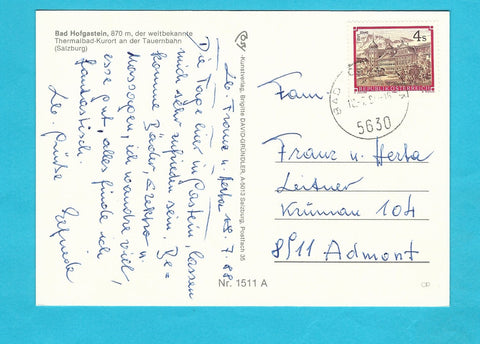 Bad Hofgastein, 870 m, der weltbekannte
Thermalbad-Kurort an der Tauernbahn
(Salzburg)
Kunstverlag, Brigitte DAVID-GRÜNDLER, A-5073 Salzburg, Postfach 35
Nr. 1511 A
18.7.88
Lb. Franz u. Herta
Die Tage hier in Gastein, lassen
mich sehr zufrieden sein. Be-
komme Bäder, Elektro u.
Massagen, ich wandre viel,
esse gut, alles finde ich
fantastisch.
Lb. Grüße Elfriede
4 S
REPUBLIK ÖSTERREICH
BAD
5630
Fam.
Franz u. Herta
Leitner
Krumau 104
8911 Admont